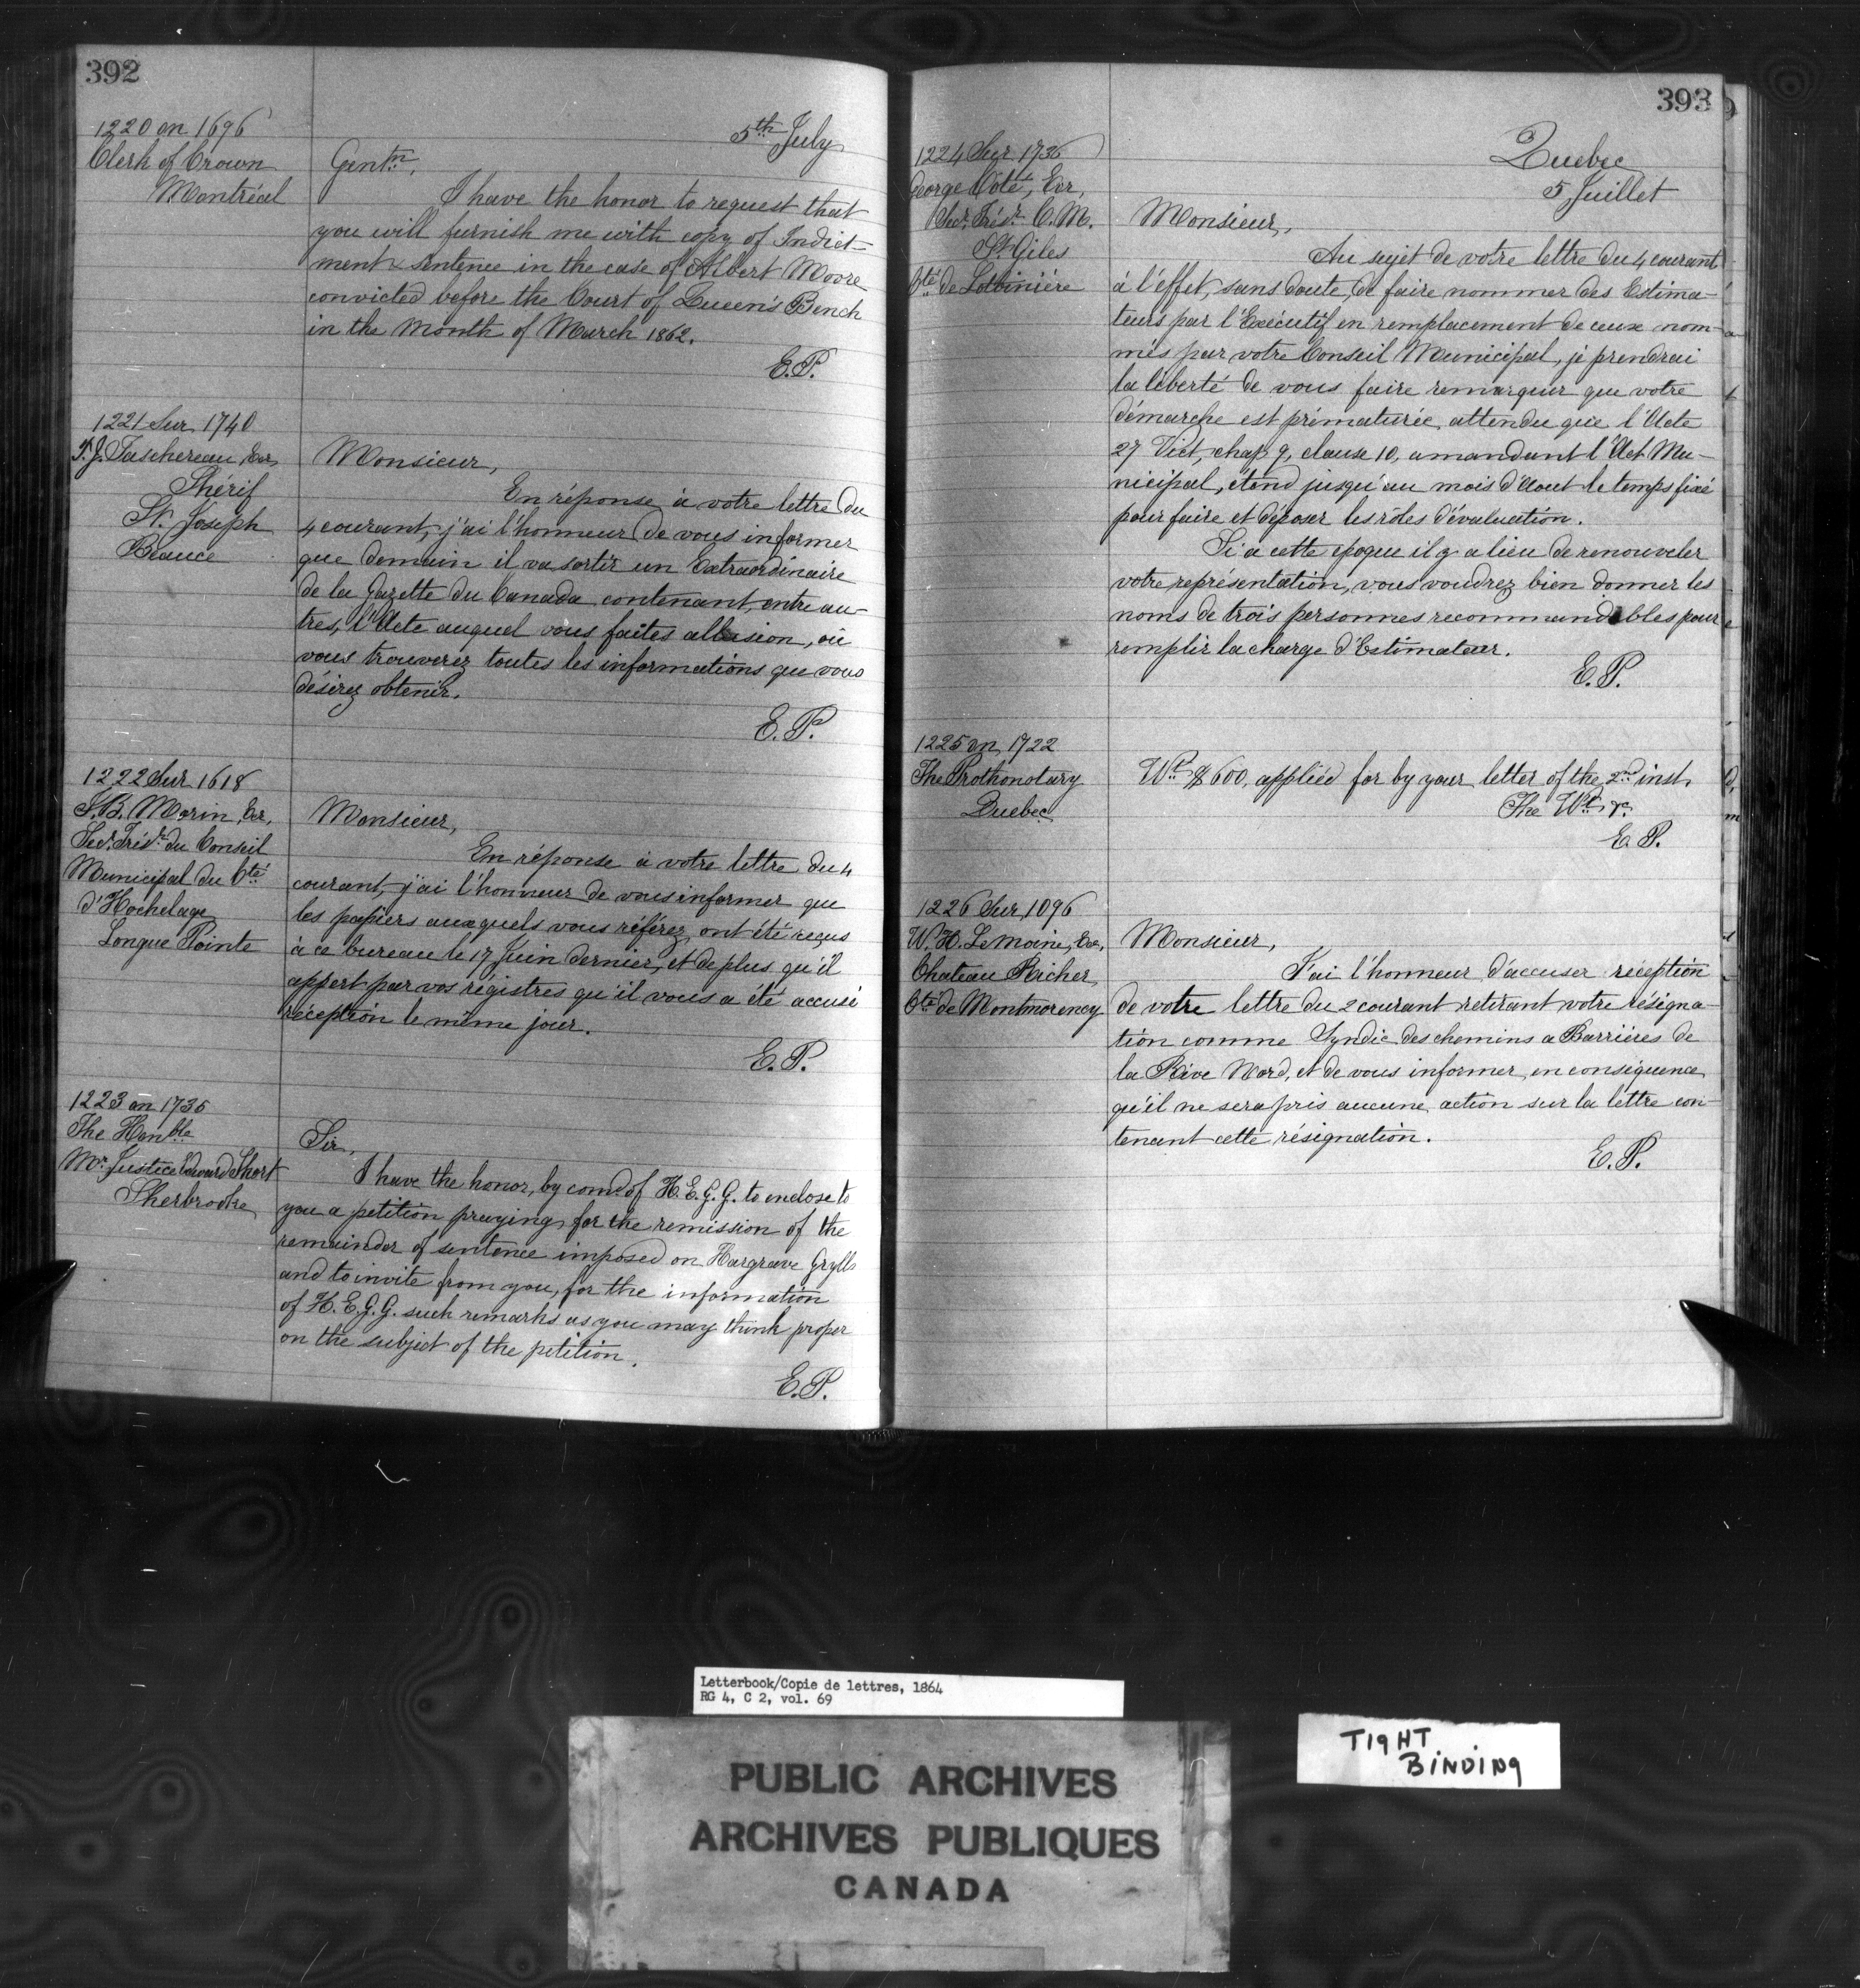 392
5th July
1220 on 1696
Clerk of Crown
Montréal
Gentn.,
I have the honor to request that
you will furnish me with copy of Indict-
ment & sentence in the case of Albert Moore
convicted before the Court of Queen's Bench
in the month of March 1862.
E.P.
1221 Sur 1740
T.J. Taschereau, Ecr,
Shérif
St. Joseph
Beauce
Monsieur,
En réponse à votre lettre du
4 courant, j'ai l'honneur de vous informer
que demain il va sortir un Extraordinaire
de la Gazette du Canada contenant, entre au-
tres, l'Acte auquel vous faites allusion, où
vous trouverez toutes les informations que vous
désirez obtenir.
E.P.
1222 Sur 1618
J.B. Morin, Ecr,
Secr. Trésr. du Conseil
Municipal du Cté
d'Hochelaga
Longue Pointe
Monsieur,
En réponse à votre lettre du 4
courant, j'ai l'honneur de vous informer que
les papiers auxquels vous référez, ont été reçus
à ce bureau le 17 Juin dernier, et de plus qu'il
appert par vos régistres qu'il vous a été accusé
réception le même jour.
E.P.
1223 on 1735
The Honble
Mr. Justice Edward Short
Sherbrooke
Sir,
I have the honor, by comd of H.E.G.G. to enclose to
you a petition praying for the remission of the
remainder of sentence imposed on Hargrave Grylls
and to invite from you, for the information
of H.E.G.G. such remarks as you may think proper
on the subject of the petition.
E.P.
393
Quebec
5 Juillet
1224 Sur 1736
George Coté, Ecr,
Secr. Trésr. C.M.
St Giles
Cté de Lotbinière
Monsieur,
Au sujet de votre lettre du 4 courant
à l'effet, sans doute, de faire nommer des Estima-
teurs par l'Exécutif en remplacement de ceux nom-
més par votre Conseil Municipal, je prendrai
la liberté de vous faire remarquer que votre
démarche est prématurée, attendu que l'Acte
27 Vict, chap 9, clause 10, amandant l'Act Mu-
nicipal, étend jusqu'au mois d'Aout le temps fixé
pour faire et déposer les rôles d'évaluation.
Si à cette epoque il y a lieu de renouveler
votre représentation, vous voudrez bien donner les
noms de trois personnes recommandables pour
remplir la charge d'Estimateur.
E.P.
1225 on 1722
The Prothonotary
Quebec
Wt $600, applied for by your letter of the 2nd inst.
The Wt &c
E.P.
1226 Sur 1096
W.H. LeMoine, Ecr,
Chateau Richer
Cté de Montmorency
Monsieur,
J'ai l'honneur d'accuser réception
de votre lettre du 2 courant retirant votre résigna-
tion comme Syndic des chemins a Barrières de
la Rive Nord, et de vous informer, en conséquence,
qu'il ne sera pris aucune action sur la lettre con-
tenant cette résignation.
E.P.
Letterbook/Copie de lettres, 1864
RG 4, C 2, vol. 69
PUBLIC ARCHIVES
ARCHIVES PUBLIQUES
CANADA
TIGHT
BINDING